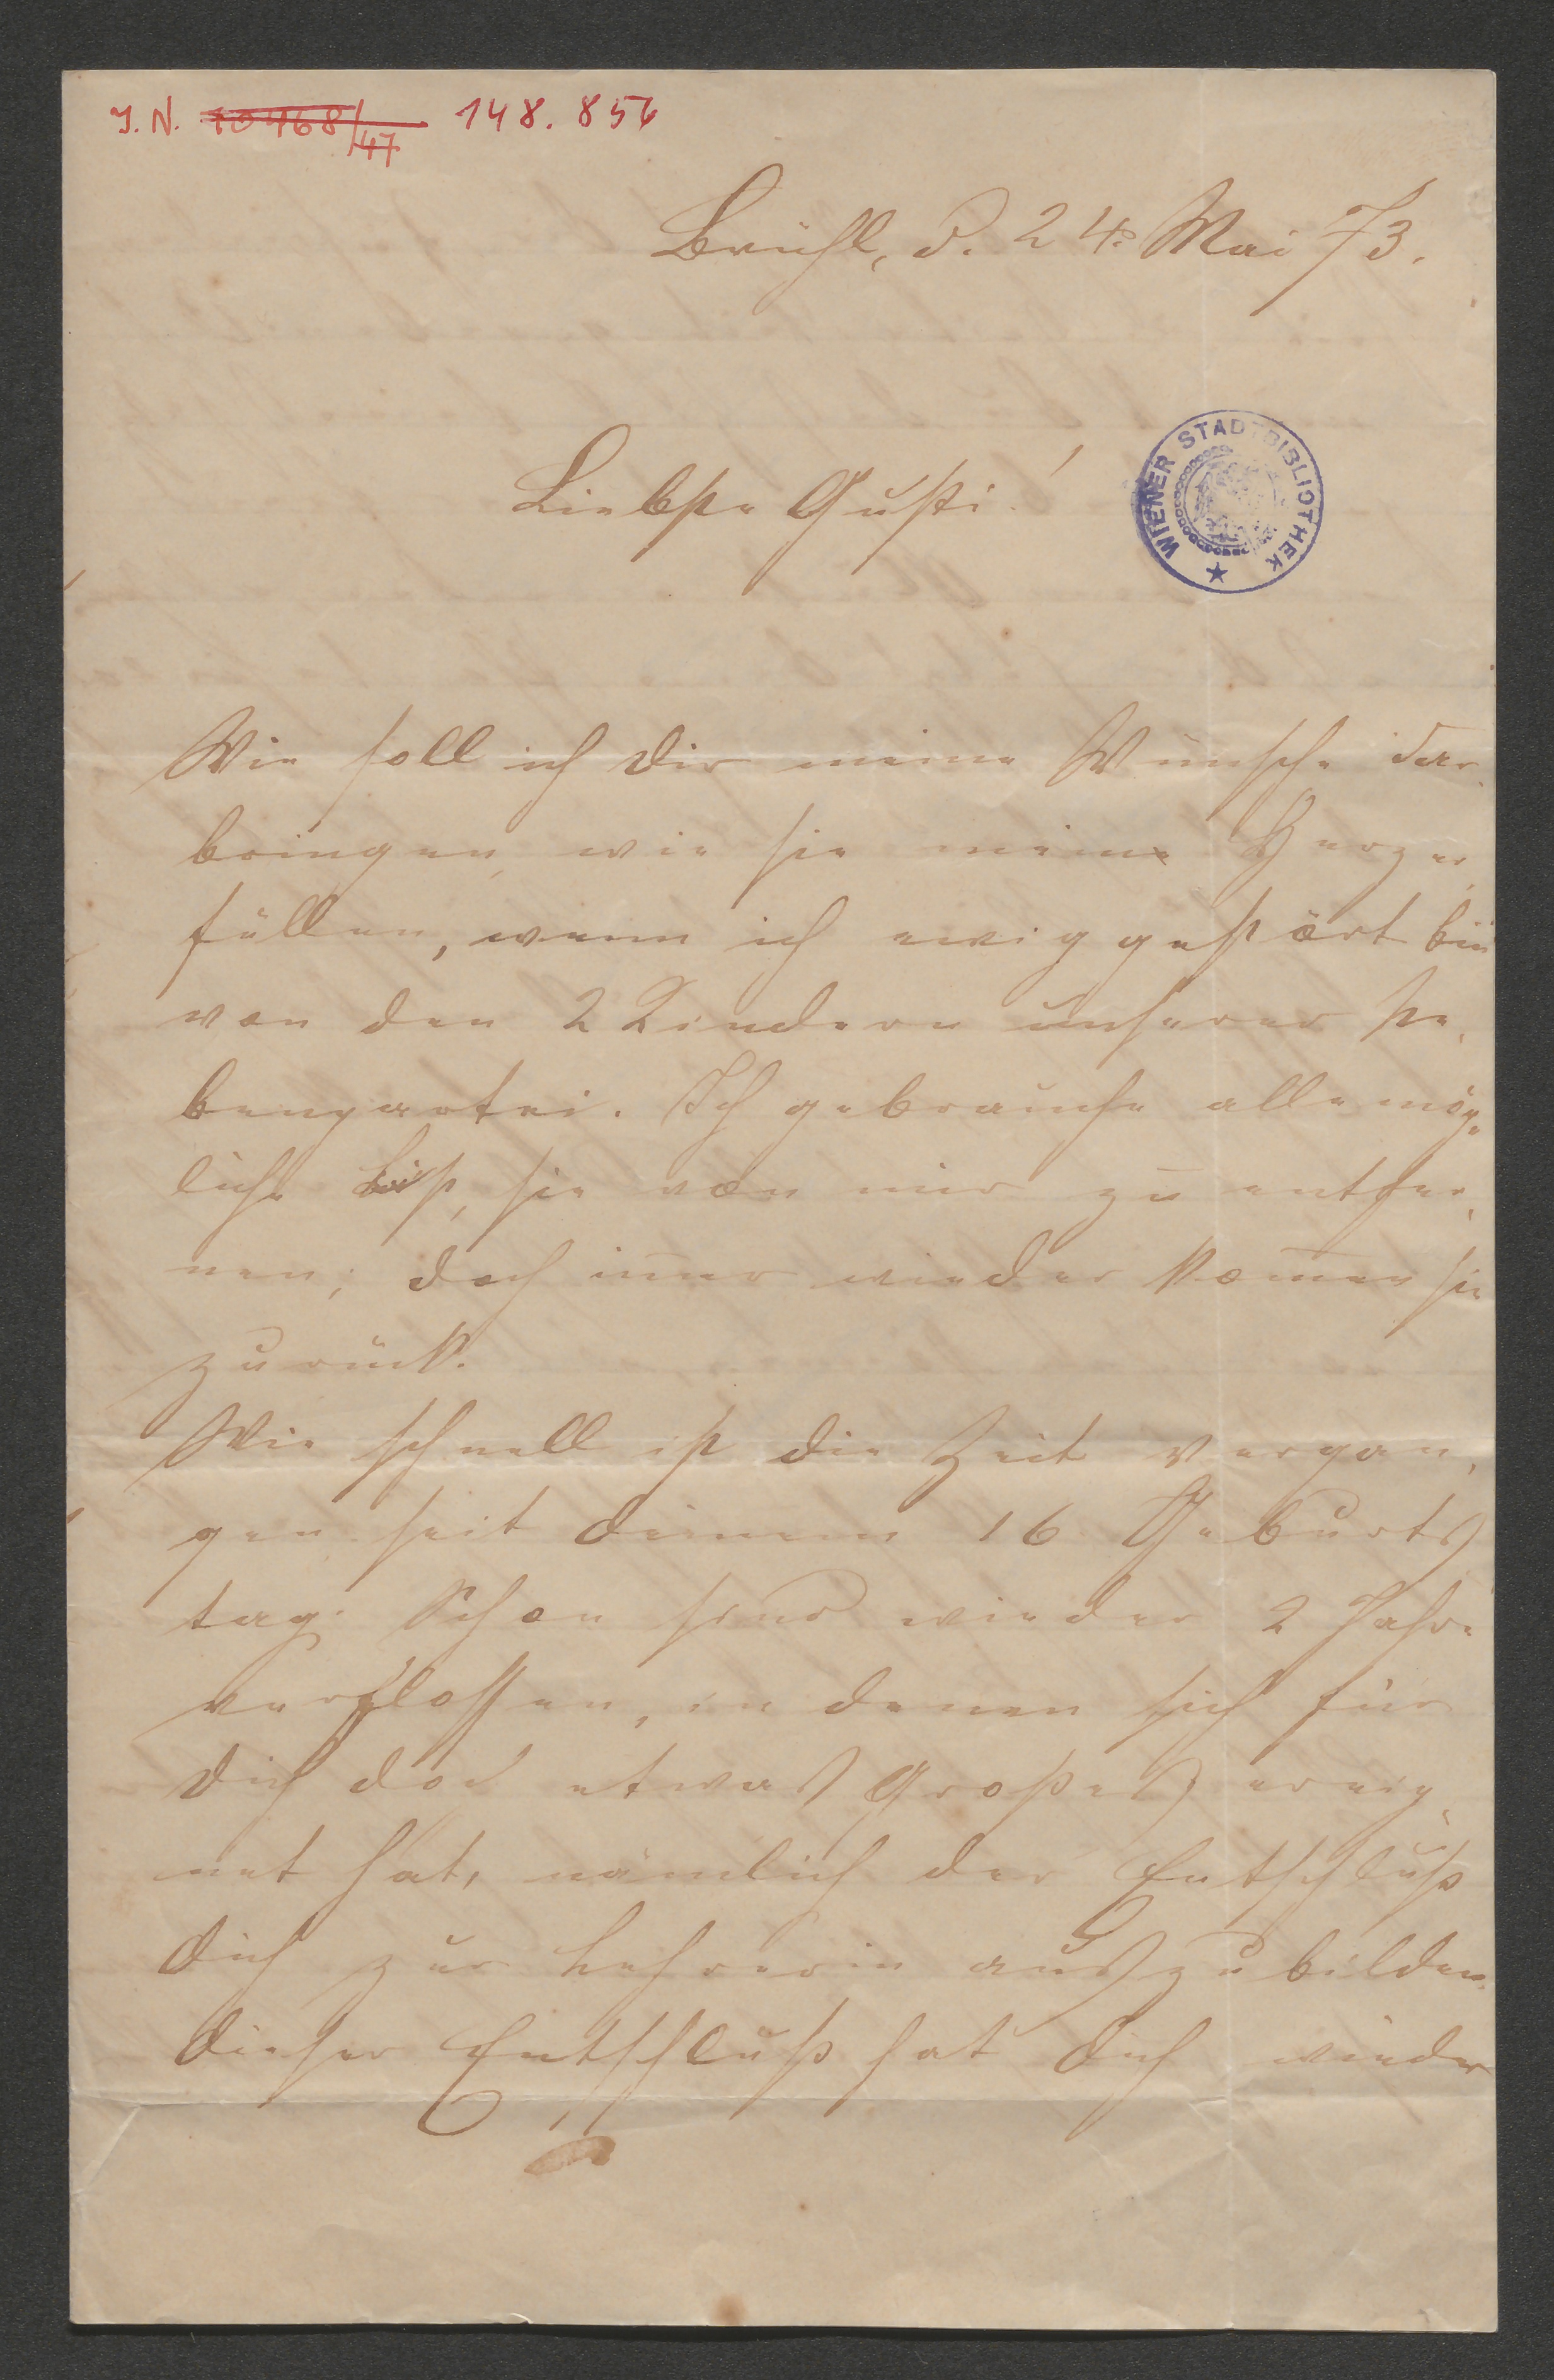 J. N. 10468/47 148.856
Brühl, d. 24. Mai 73.
Liebste Gusti!
WIENER STADTBIBLIOTHEK
Wie soll ich Dir meine Wünsche dar-
bringen, wie sie mein Herz er-
füllen, wenn ich ewig gestört bin
von den 2 Kindern unserer Ne-
benpartei. Ich gebrauche alle mög-
liche List, sie von mir zu entfer-
nen; doch im̅er wieder kom̅en sie
zurück.
Wie schnell ist die Zeit vergan-
gen seit deinem 16. Geburts
tag. Schon sind wieder 2 Jahre
verflossen, in denen sich für
Dich doch etwas Großes ereig-
net hat, nämlich der Entschluß
Dich zur Lehrerin auszubilden.
Dieser Entschluß hat Dich wieder